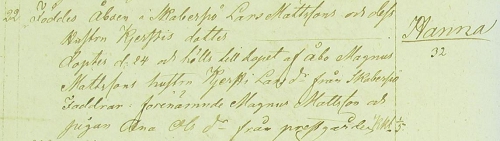 22 Föddes Åboen i Skabersjö Lars Mattssons och dess Hanna
hustru Kjerstis dotter 32
döptes d. 24 och hölts till dopet af åbo Magnus
Mattssons hustru Kjersti Lars dr från Skabersjö
Faddrar: förenämnde Magnus Mattsson och
pigan Ana Ols dr från prestgården